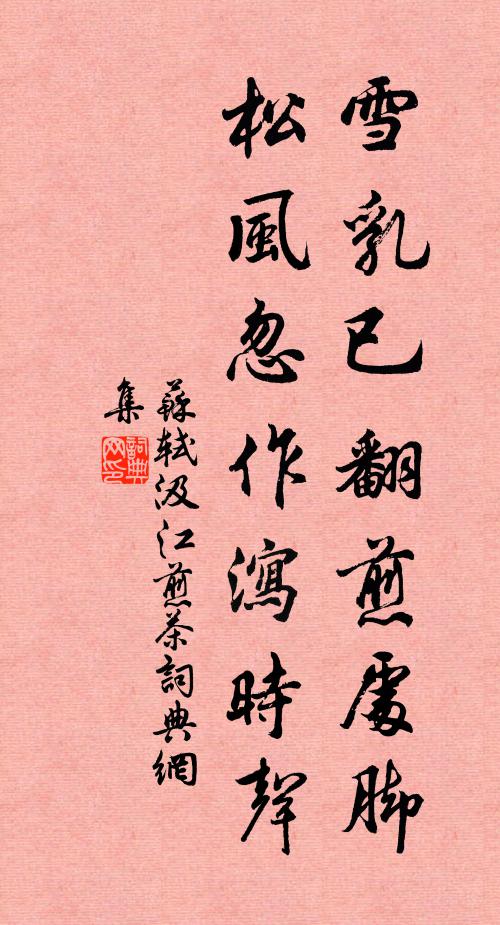 雪乳已翻煎處腳
松風忽作瀉時聲
蘇軾汲江煎茶詞典網
集
詞典
网印